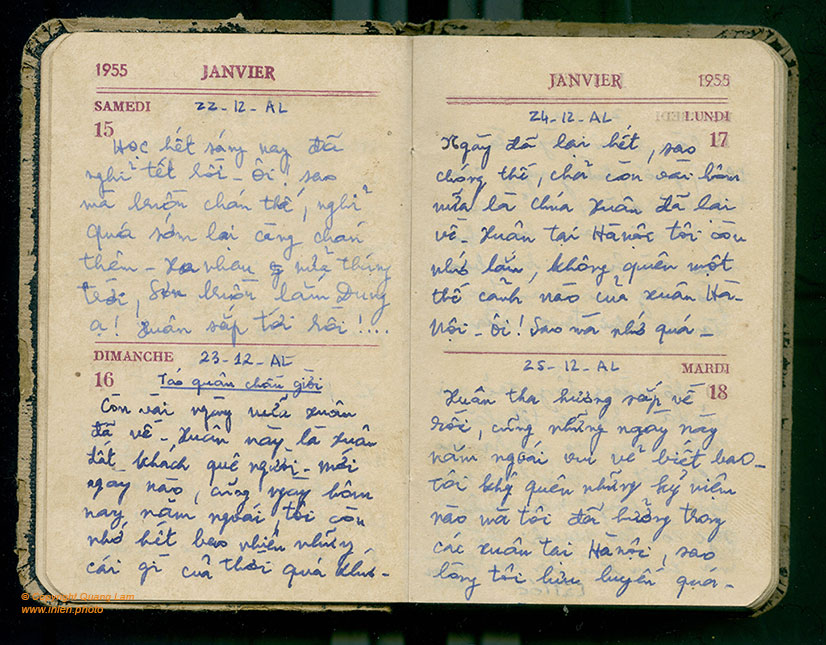 1955 JANVIER
SAMEDI 22-12-AL
15
Học hết sáng nay đã
nghỉ tết rồi - Ôi! sao
mà buồn chán thế, nghỉ
quá sớm lại càng chán
thêm - Xa nhau nửa tháng
trời, Sơn buồn lắm Dung
ạ! Xuân sắp tới rồi!...
DIMANCHE 23-12-AL
16
Táo quân chầu giời
Còn vài ngày nữa xuân
đã về - Xuân này là xuân
đất khách quê người - mới
ngày nào, cũng ngày hôm
nay năm ngoái, tôi còn
nhớ hết bao nhiêu những
cái gì của thời quá khứ -
JANVIER 1955
24-12-AL LUNDI
17
Ngày đã lại hết, sao
chóng thế, chỉ còn vài hôm
nữa là chúa Xuân đã lại
về - Xuân tại Hà nội tôi còn
nhớ lắm, không quên một
thế cảnh nào của xuân Hà-
Nội - Ôi! Sao mà nhớ quá -
25-12-AL MARDI
18
Xuân tha hương sắp về
rồi, cũng những ngày này
năm ngoái vui vẻ biết bao -
tôi khg quên những kỷ niệm
nào mà tôi đã hưởng trong
các xuân tại Hà nội, sao
lòng tôi lưu luyến quá -
© Copyright Quang Lam
www.inlen.photo